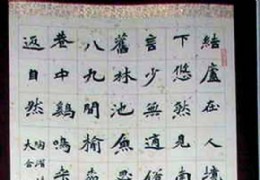 結廬在人境
下悠然見南
言少無適俗
舊林池魚思
八九間榆
巷中雞鳴
返自然